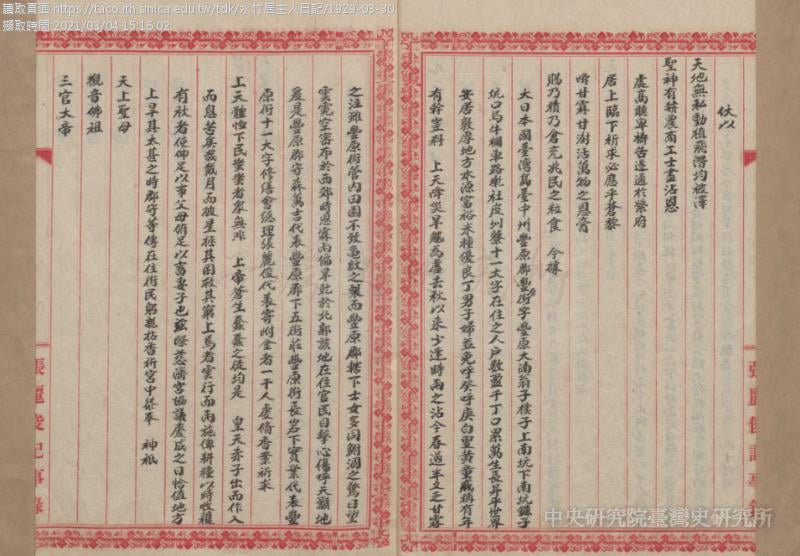 讀取頁面:https://taco.ith.sinica.edu.tw/tdk/水竹居主人日記/1929-03-30
擷取時間:2021/03/04 15:16:02
伏以
天地無私動植飛潛均被澤
聖神有赫農商工士盡沾恩
處高聽卑禱告遂通於紫府
居上臨下祈求必應乎蒼黎
時甘霖甘澍沾萬物之恩膏
賜乃積乃倉充兆民之粒食 今據
大日本國臺灣島臺中州豐原郡豐原街字豐原大湳翁子樸子上南坑下南坑鐮子
坑口烏牛欄車路墘社皮圳藔十一大字在住之人戶數盈千丁口累萬生長昇平世界
安居敦厚地方水源富裕米種優良丁男子婦並免呼癸呼庚白叟黃童咸稱有年
有幹豈料 上天降災旱魃為虐去秋以來少逢時雨之沾今春過半又乏甘霖
之注雖豐原街管內田園不致龜紋之製而豐原郡轄下士女多同鮒涸之驚日望
雲霓空密布於西郊時思霖雨偏旱乾於北郭該地在住官民目擊心傷呼天籲地
爰是豐原郡守森萬吉代表豐原郡下五街庄豐原街長岩下實業代表豐
原街十一大字修繕會總理張麗俊代表寄附金者一千人虔備香案祈求
上天體恤下民樂樂者眾無非 上帝蒼生蠢蠢之徒均是 皇天赤子出而作入
而息苦矣哉戴月而披星拯其困救其窮上焉者雲行而雨施俾耕種以時收穫
有秋者使仰足以事父母俯足以畜妻子也茲際慈濟宮協議慶成之日恰值地方
上旱具太甚之時郡守等偕在住街民躬親拈香祈宮中崇奉 神祇
天上聖母
觀音佛祖
三官大帝
張麗俊記事錄
張麗俊記事錄
中央研究院臺灣史研究所